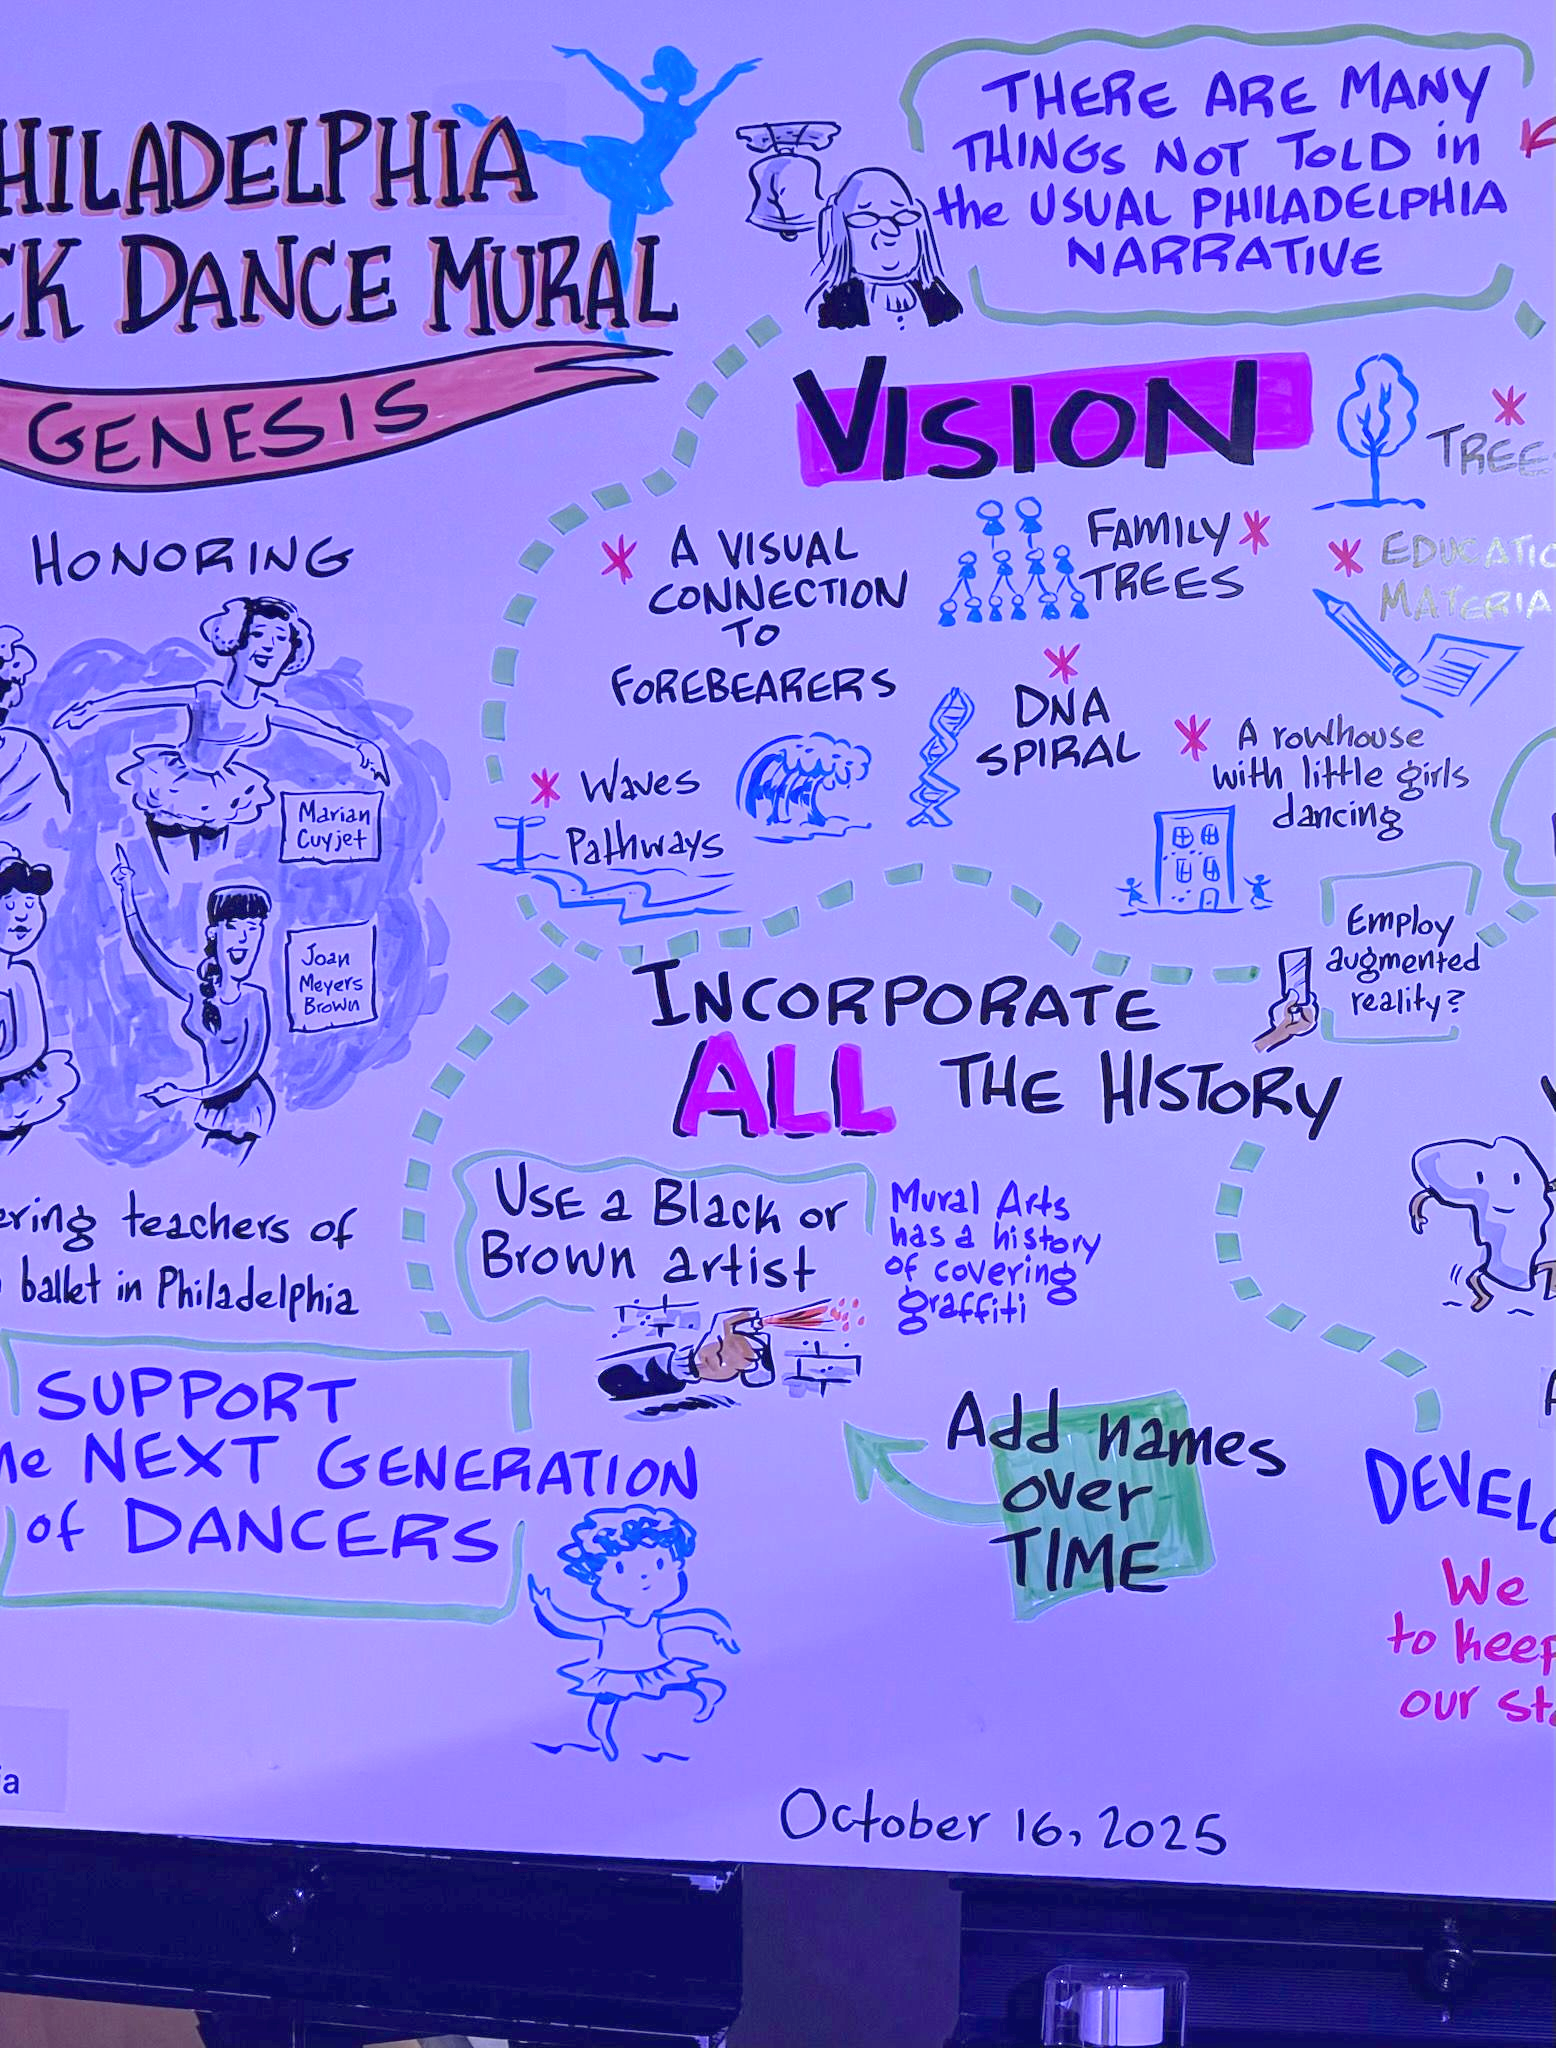 HILADELPHIA
CK DANCE MURAL
GENESIS
HONORING
Marian
Cuyjet
Joan
Meyers
Brown
ering teachers of
ballet in Philadelphia
SUPPORT
he NEXT GENERATION
of DANCERS
ia
THERE ARE MANY
THINGS NOT TOLD in
the USUAL PHILADELPHIA
NARRATIVE
VISION
TREE
A VISUAL
CONNECTION
TO
FOREBEARERS
FAMILY
TREES
EDUCATIO
MATERIA
DNA
SPIRAL
A rowhouse
with little girls
dancing
Waves
Pathways
Employ
augmented
reality?
INCORPORATE
ALL THE HISTORY
USE a Black or
Brown artist
Mural Arts
has a history
of covering
graffiti
Add names
over
TIME
DEVELO
We
to keep
our sto
October 16, 2025